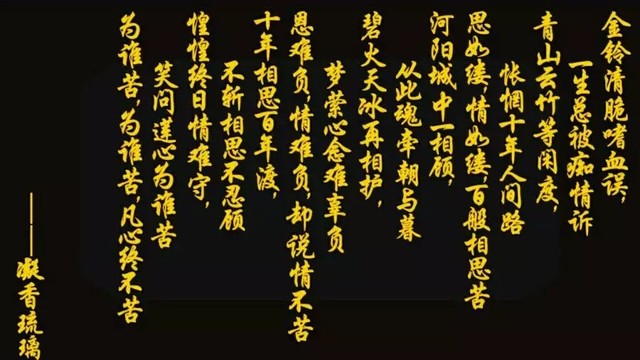 金铃清脆嗜血误，
一生总被痴情诉
青山云竹等闲度，
怅惘十年人间路
思如缕，情如缕，百般相思苦
河阳城中一相顾，
从此魂牵朝与暮
碧火天冰再相护，
梦萦心念难辜负
恩难负，情难负，却说情不苦
十年相思百年渡，
不斩相思不忍顾
惶惶终日情难守，
笑问莲心为谁苦
为谁苦，为谁苦，凡心终不苦
——凝香琉璃